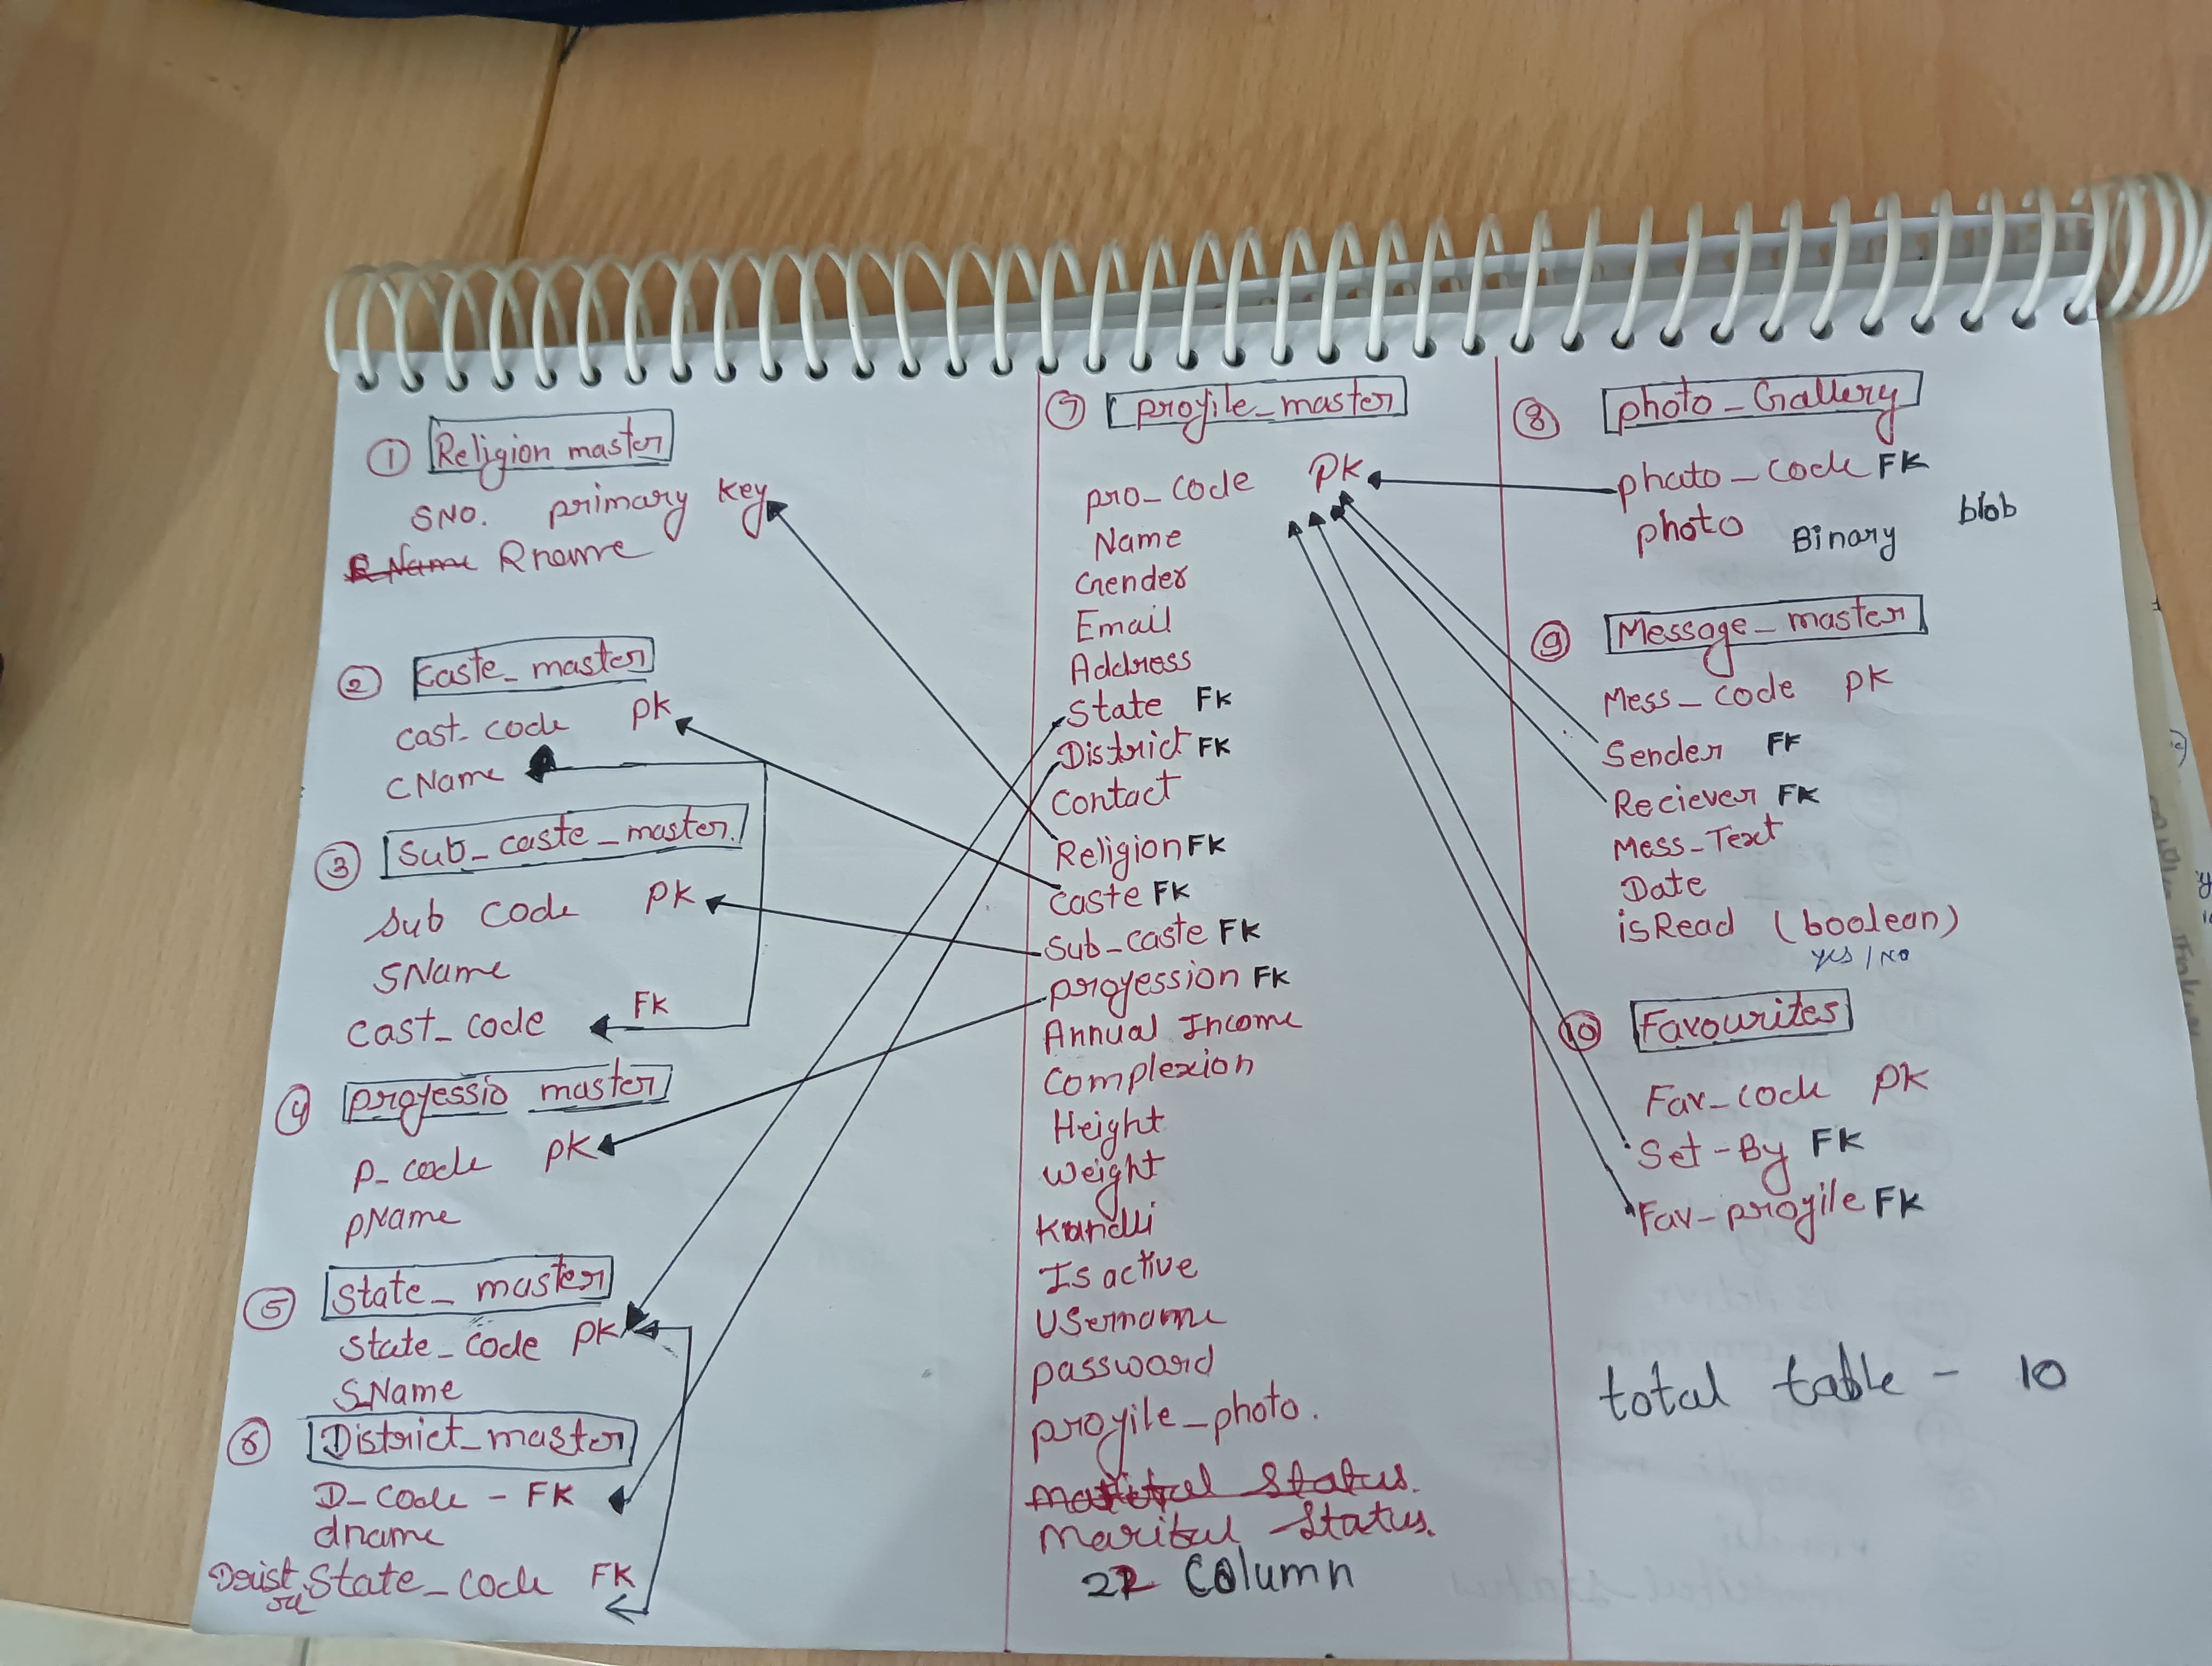 ① Religion master
SNO. primary key
R Name Rname
② Caste_master
cast_code pk
CName
③ Sub_caste_master.
Sub code pk
SName
Cast_code FK
④ professio master
P_code pk
pName
⑤ State_master
State_code pk
SName
⑥ District_master
D_code - FK
dname
State_code FK
⑦ profile_master
pro_code pk
Name
Gender
Email
Address
State FK
District FK
Contact
Religion FK
Caste FK
Sub_caste FK
profession FK
Annual Income
Complexion
Height
Weight
Kundli
Is active
Username
password
profile_photo.
Marital Status.
Marital Status.
22 Column
⑧ photo_Gallery
photo_code FK
photo Binary blob
⑨ Message_master
Mess_code pk
Sender FK
Reciever FK
Mess_Text
Date
isRead (boolean)
yes / No
⑩ Favourites
Fav_code pk
Set-By FK
Fav-profile FK
total table - 10